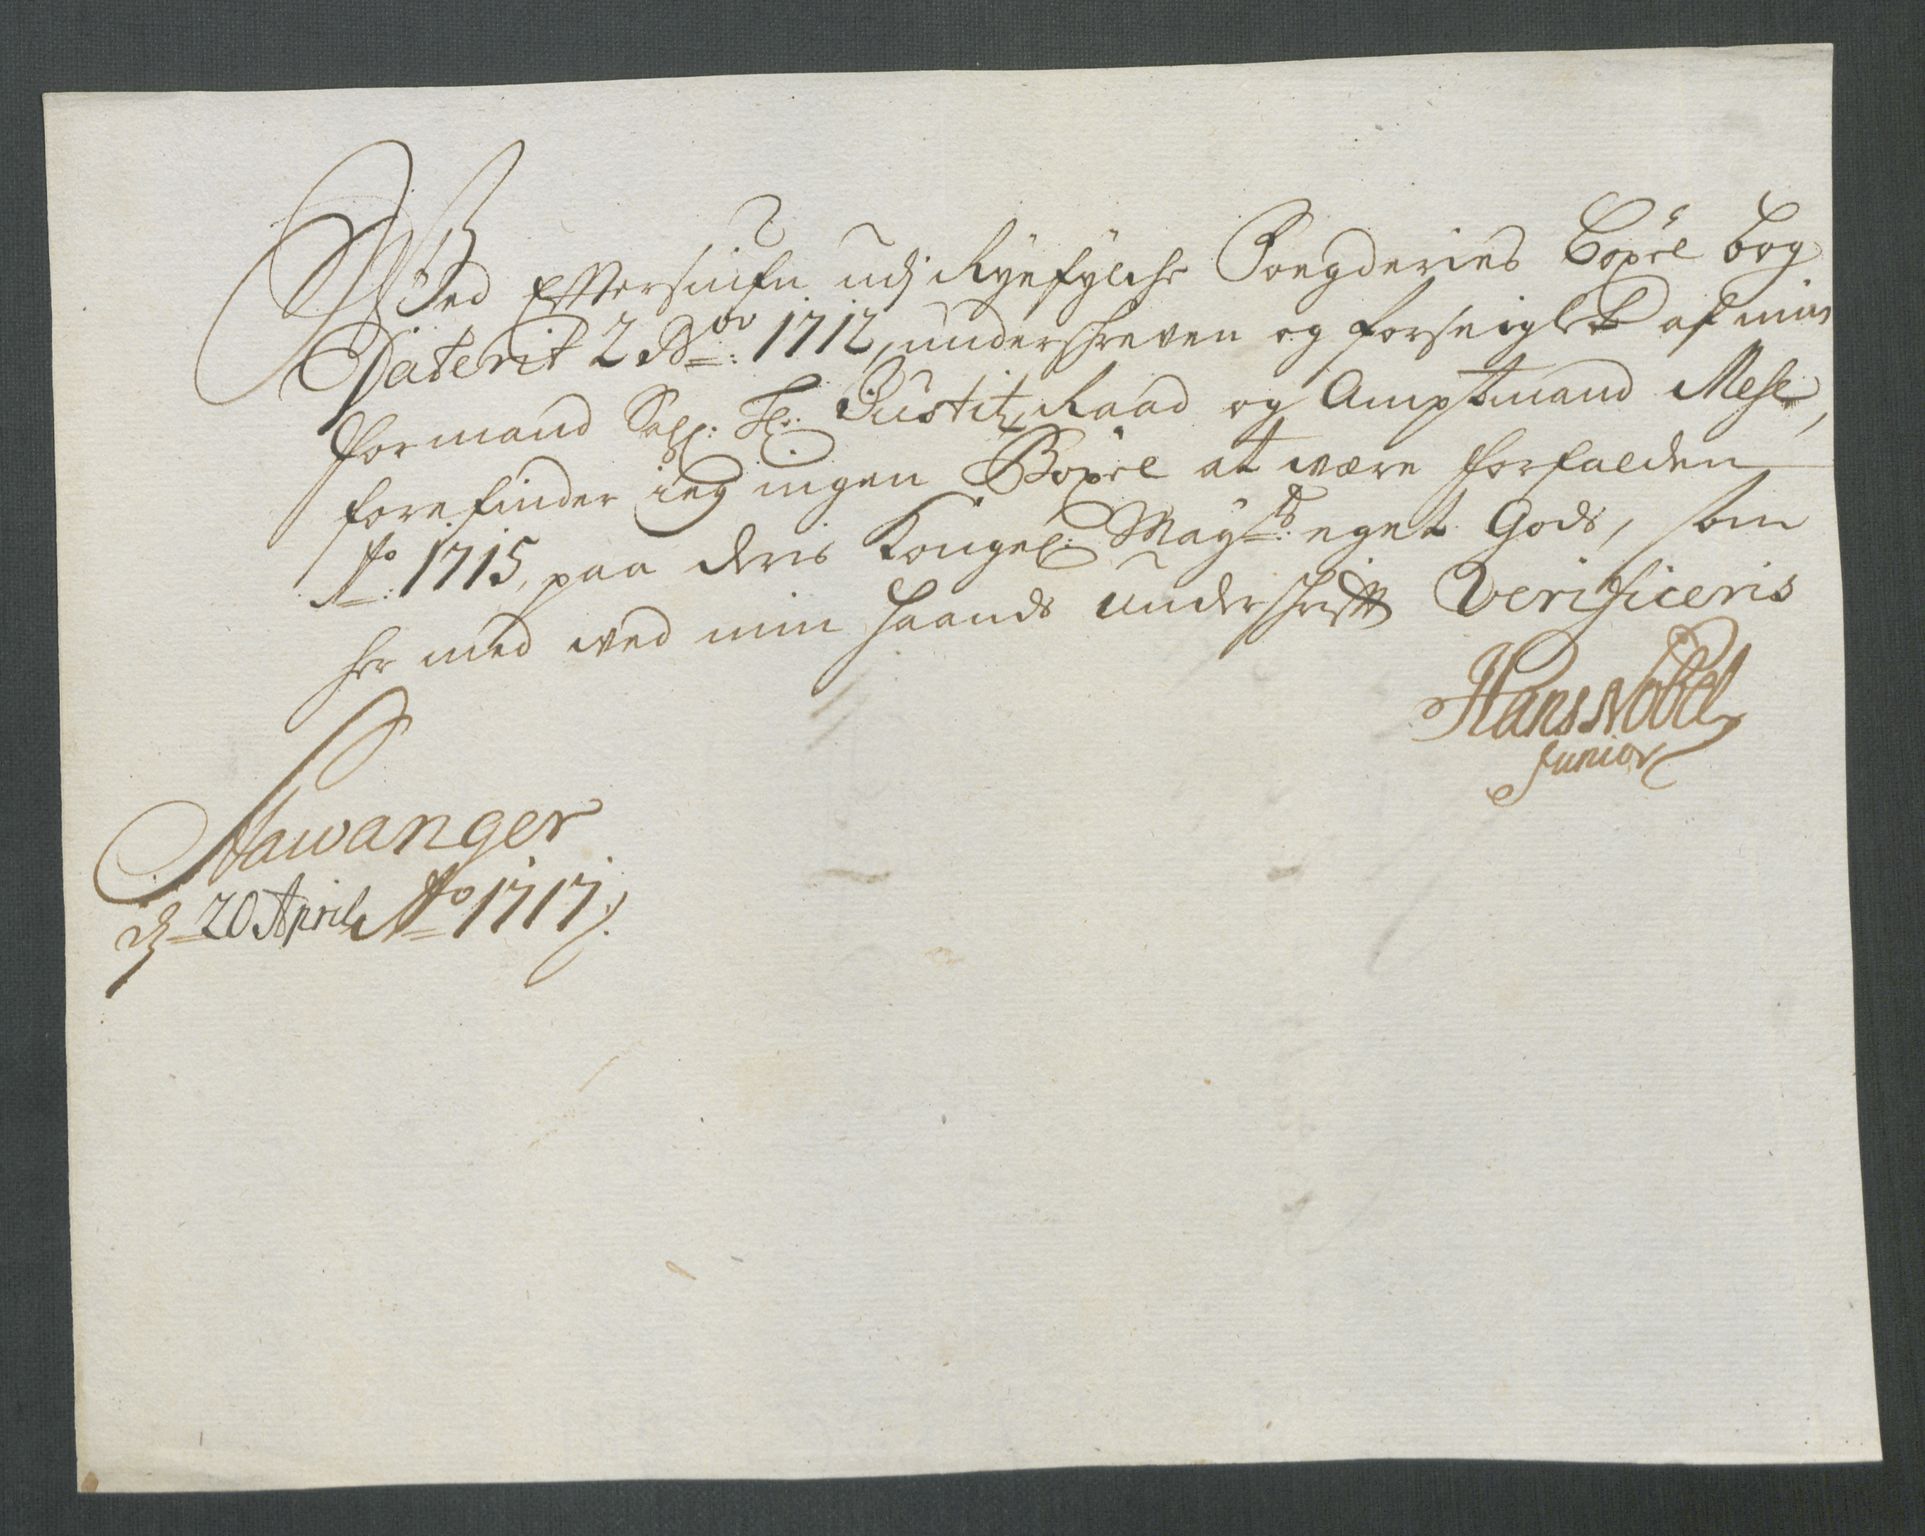 Wed Effterseufn udj Ryefylche Foegderies Böxel bog
Daterit 2 Nov: 1712, underschreven og forseiglet af min
formand Sal: Hr: Justitz Raad og Amptmand Mese,
forefinder ieg ingen Böxel at være forfalden
Ao: 1715, paa deris Kongel: Mayts: eget Gods, som
her med wed min Haands Underschrifft Verificeris
Hans Nobel
Junior
Stawanger
d: 20 April Ao 1717.